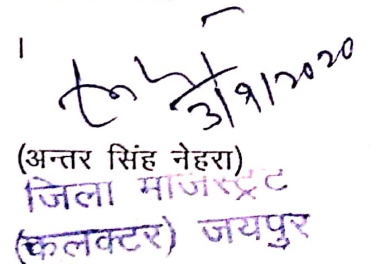 ।
3/9/2020
(अन्तर सिंह नेहरा)
जिला मजिस्ट्रेट
(कलक्टर) जयपुर